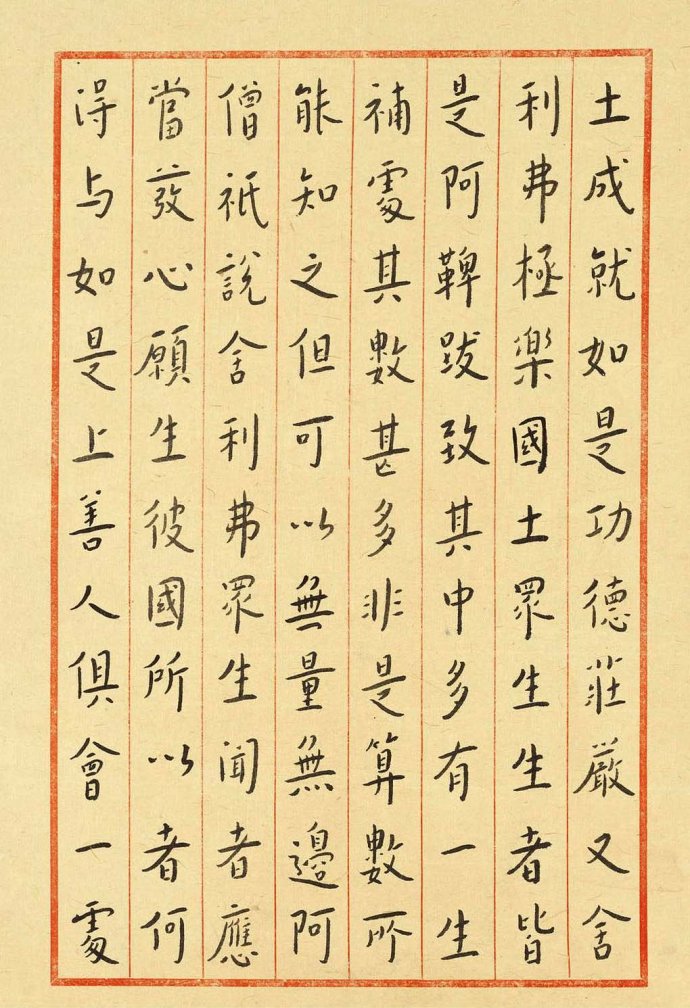 土成就如是功德莊嚴又舍
利弗極樂國土眾生生者皆
是阿鞞跋致其中多有一生
補處其數甚多非是算數所
能知之但可以無量無邊阿
僧祇說舍利弗眾生聞者應
當發心願生彼國所以者何
得与如是上善人俱會一處